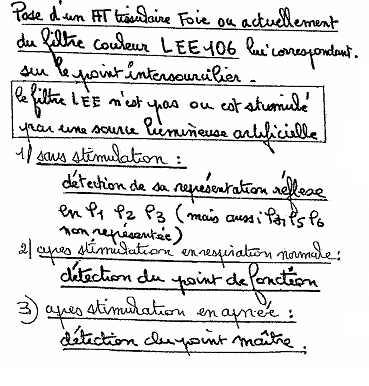 Pose d'un AT tissulaire Foie ou actuellement
du filtre couleur LEE 106 lui correspondant.
sur le point intersourcilier.
le filtre LEE n'est pas ou est stimulé
par une source lumineuse artificielle
1) sans stimulation :
détection de sa représentation réflexe
en P1 P2 P3 (mais aussi P4 P5 P6
non représentée)
2) apres stimulation en respiration normale :
détection du point de fonction
3) apres stimulation en apnée :
détection du point maître.